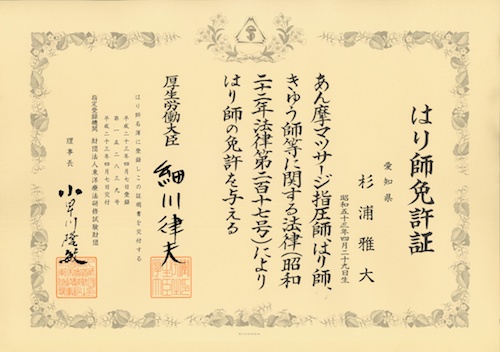 はり師免許証
愛知県
杉浦雅大
昭和五十三年四月二十九日生
あん摩マツサージ指圧師、はり師、
きゆう師等に関する法律(昭和
二十二年法律第二百十七号)により
はり師の免許を与える
厚生労働大臣
細川律夫
はり師名簿に登録しこの証明書を交付する
平成二十三年四月七日登録
第一五二八三九号
平成二十三年四月七日交付
指定登録機関 財団法人東洋療法研修試験財団
理事長